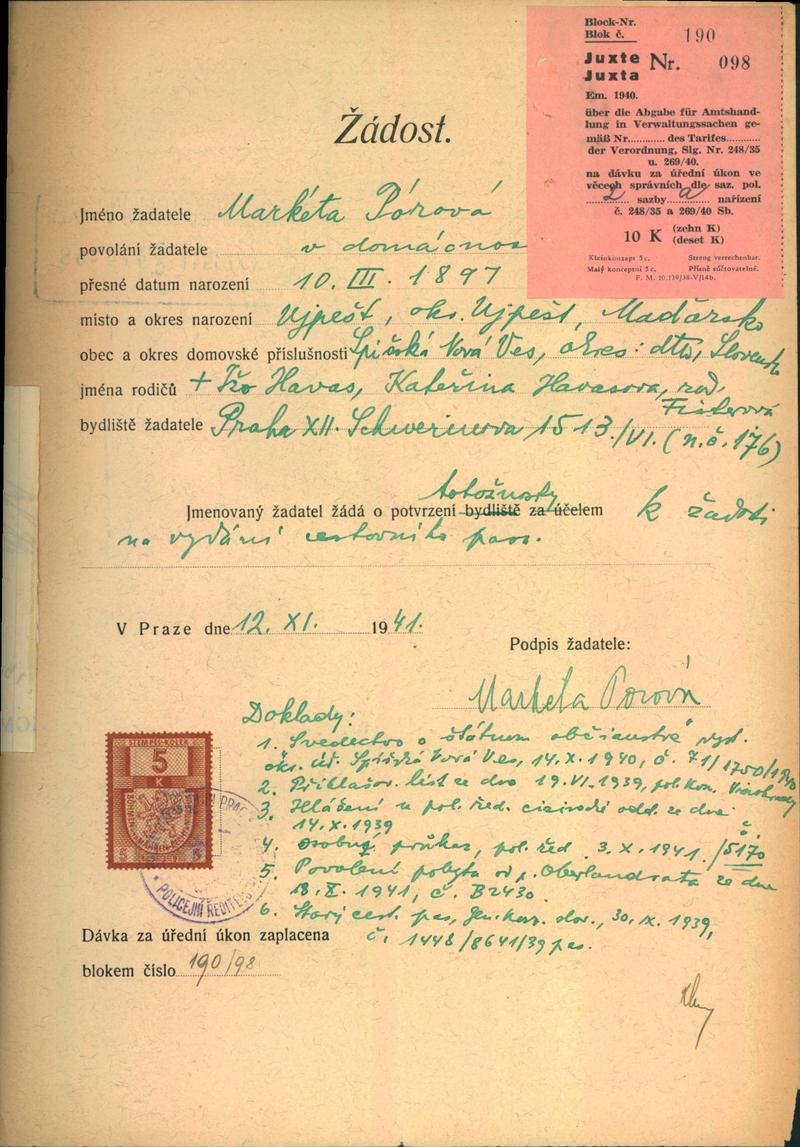 Block-Nr.
Blok č. 190
Juxte
Juxta Nr. 098
Em. 1940.
über die Abgabe für Amtshand-
lung in Verwaltungssachen ge-
mäß Nr............ des Tarifes............
der Verordnung, Slg. Nr. 248/35
u. 269/40.
na dávku za úřední úkon ve
věcech správních dle saz. pol.
2 sazby a nařízení
č. 248/35 a 269/40 Sb.
10 K (zehn K)
(deset K)
Kleinkonzept 5 c. Streng verrechenbar.
Malý konceptní 5 c. Přísně súčtovatelné.
F. M. 10.139/38-V/14b.
Žádost.
Jméno žadatele Markéta Pórová
povolání žadatele v domácnos
přesné datum narození 10. III. 1897
místo a okres narození Ujpešt, okr. Ujpešt, Maďarsko
obec a okres domovské příslušnosti Spišská Nová Ves, okres: dtto, Slovensko
jména rodičů + Ižo Havas, Kateřina Havasova, roz.
Fišerová
bydliště žadatele Praha XII. Schwerinova 1513/VI. (n.č. 176)
totožnosti
Jmenovaný žadatel žádá o potvrzení bydliště za účelem k žádosti
na vydání cestovního pasu.
V Praze dne 12. XI. 1941.
Podpis žadatele:
Markéta Porová
Doklady:
1. Svedectvo o štátnom občianstve vyd.
okr. úř. Spišská Nová Ves, 14.X.1940, č. 71/1750/1940
2. Přihlašov. list ze dne 19.VI.1939, pol. kom. Vinohrady
3. Hlášení u pol. řed. cizinecké odd. ze dne
14.X.1939
4. osobní průkaz, pol. řed. 3.X.1941 č. /5170
5. Povolení pobytu od p. Oberlandrata ze dne
18.X.1941, č. B2430.
6. Starý cest. pas, Gen. konz. slov., 30.IX.1939,
č. 1448/8641/39 pas.
STEMPEL-KOLEK
5
K
POLICEJNÍ ŘEDITELS
Dávka za úřední úkon zaplacena
blokem číslo 190/98